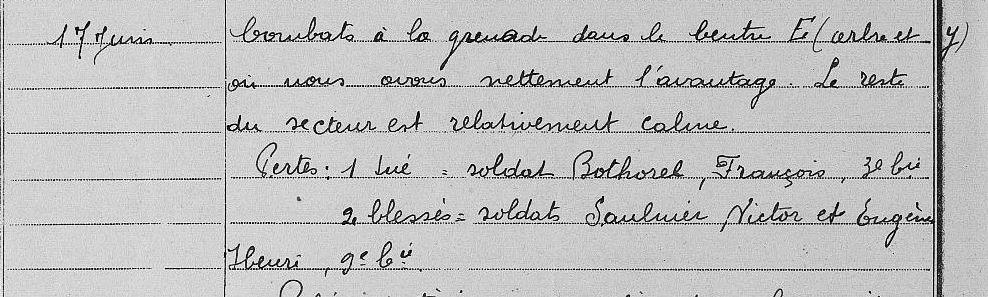 17 Juin. Combats à la grenade dans le Centre E (arbre et Y)
où nous avons nettement l'avantage. Le reste
du secteur est relativement calme.
Pertes : 1 tué = soldat Bothorel, François, 3e bie
2 blessés = soldats Saulnier, Victor et Eugène
Henri, 9e bie